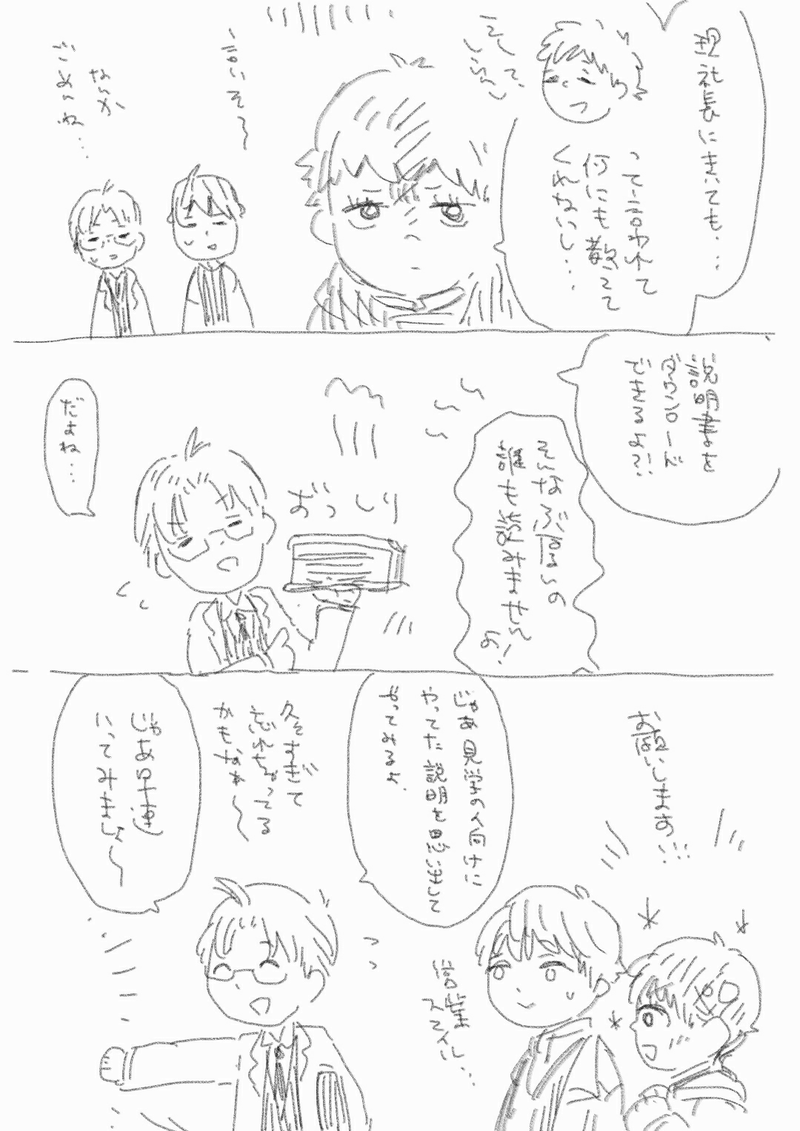 現社長にきいても・・
そして、
しらん
って言われて
何にも教えて
くれないし・・・
言いそ〜
なんか
ごめんね・・・
説明書を
ダウンロード
できるよ?!
そんなぶ厚いの
誰も読みませんよ!
おっしり
だよね・・・
お願いします!!!
じゃあ見学の人向けに
やってた説明を思い出して
やってみるよ、
営業
スマイル・・
久々すぎて
忘れちゃってる
かもなぁ〜
じゃあ早速
いってみましょ〜